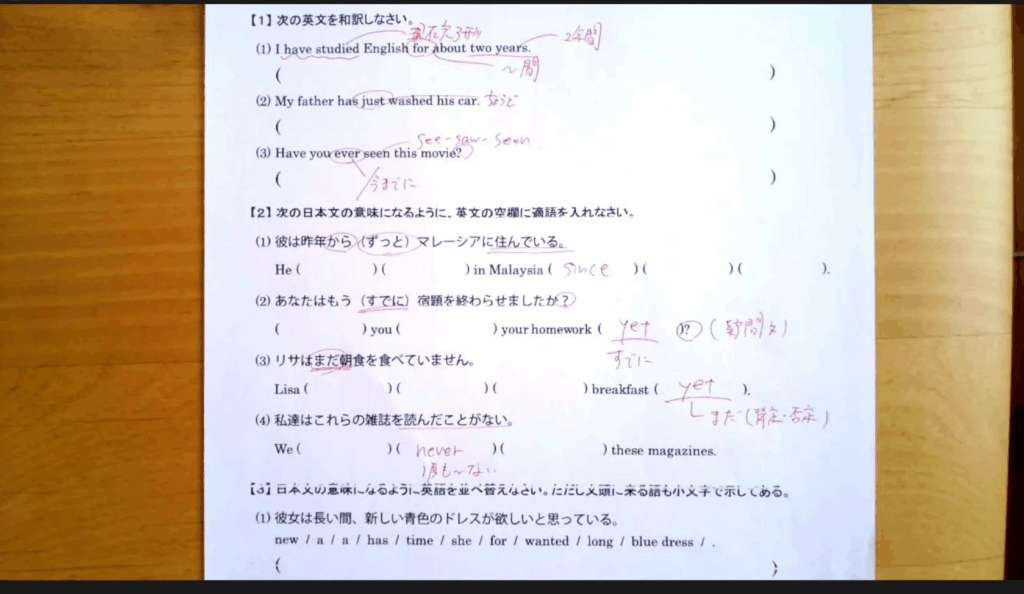 【1】次の英文を和訳しなさい。
現在完了形
(1) I have studied English for about two years. 2年間
～間
( )
(2) My father has just washed his car. ちょうど
( )
see-saw-seen
(3) Have you ever seen this movie?
( 今までに )
【2】次の日本文の意味になるように、英文の空欄に適語を入れなさい。
(1) 彼は昨年から（ずっと）マレーシアに住んでいる。
He ( )( ) in Malaysia ( since )( )( ).
(2) あなたはもう（すでに）宿題を終わらせましたか？
( ) you ( ) your homework ( yet )? (疑問文)
すでに
(3) リサはまだ朝食を食べていません。
Lisa ( )( )( ) breakfast ( yet ).
まだ(肯定・否定)
(4) 私達はこれらの雑誌を読んだことがない。
We ( )( never )( ) these magazines.
1度も～ない
【3】日本文の意味になるように英語を並べ替えなさい。ただし文頭に来る語も小文字で示してある。
(1) 彼女は長い間、新しい青色のドレスが欲しいと思っている。
new / a / a / has / time / she / for / wanted / long / blue dress / .
( )